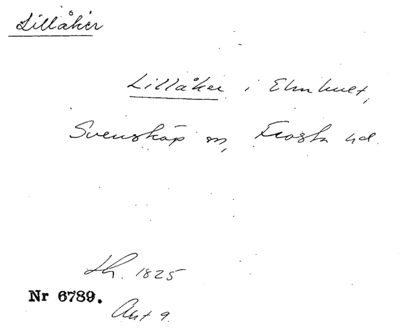 Lillåker
Lillåker i Elmhult,
Svensköp sn, Frosta hd.
Lh. 1825
Nr 6789.
Akt 9.